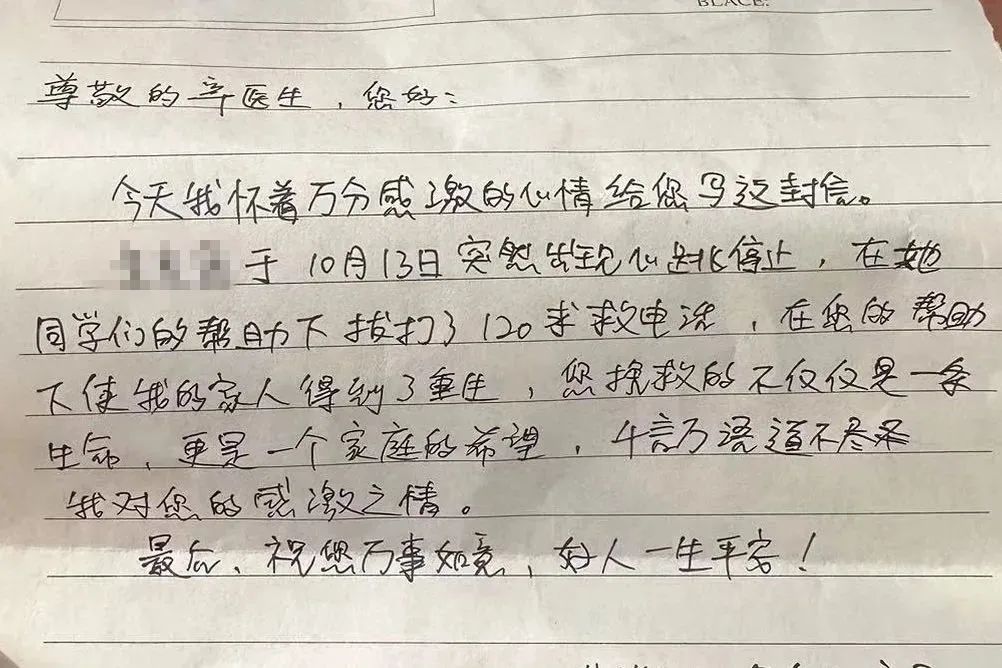 BLACE:
尊敬的辛医生，您好：
今天我怀着万分感激的心情给您写这封信。
于10月13日突然出现心跳停止，在她
同学们的帮助下拔打了120求救电话，在您的帮助
下使我的家人得到了重生，您挽救的不仅仅是一条
生命，更是一个家庭的希望，千言万语道不尽
我对您的感激之情。
最后、祝您万事如意，好人一生平安！